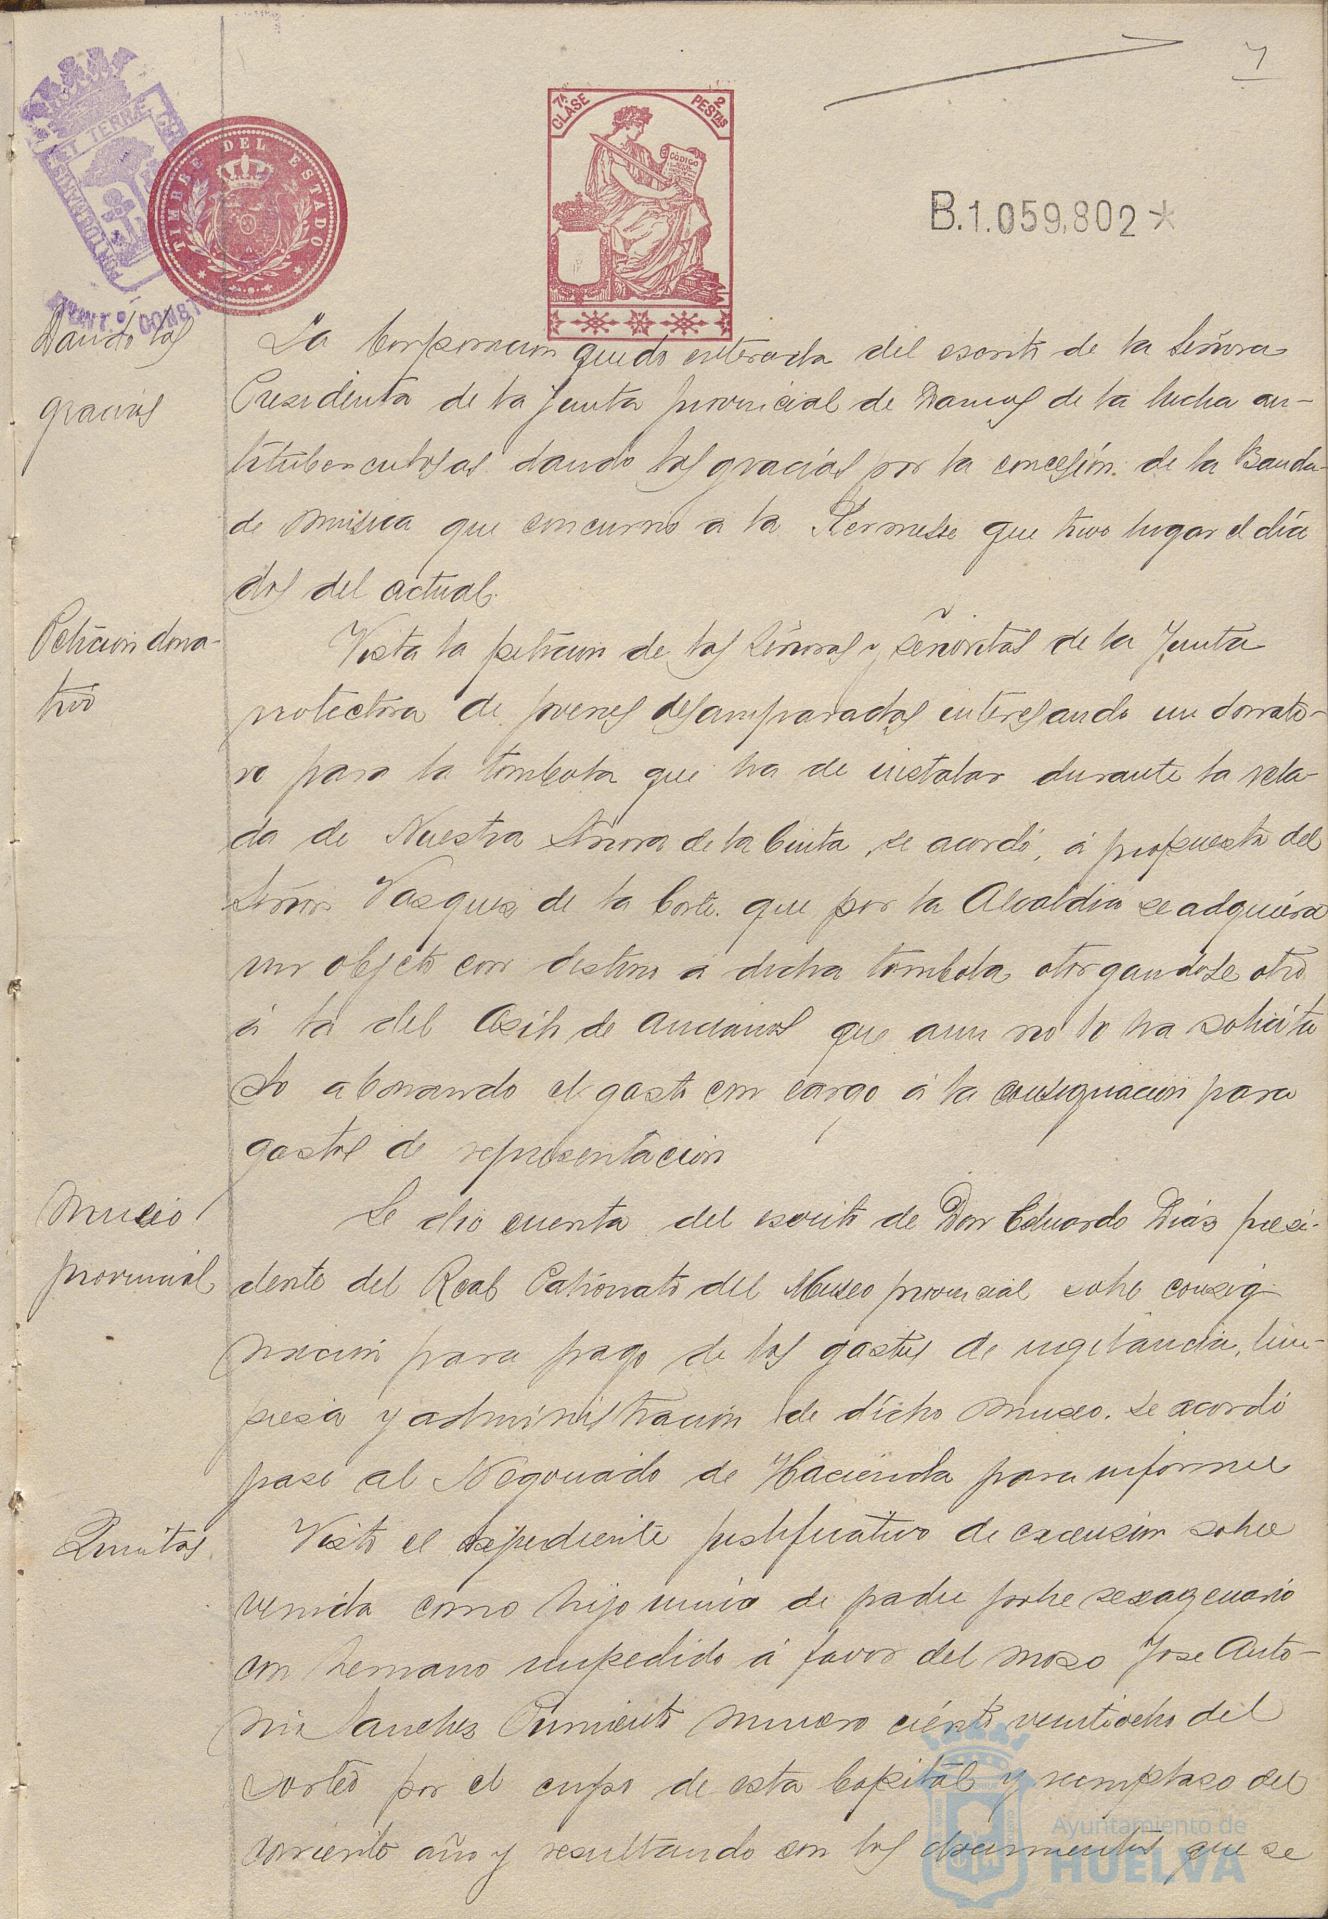 7
7ª CLASE
2 PESTAS
CÓDIGO
TIMBRE DEL ESTADO
B.1.059.802*
Dando las
gracias
La Corporacion quedó enterada del escrito de la Señora
Presidenta de la Junta provincial de Damas de la lucha an-
tituberculosas dando las gracias por la concesión de la Banda
de música que concurrió a la Kermesse que tuvo lugar el día
dos del actual.
Petición dona-
tivo
Vista la petición de las Señoras y señoritas de la Junta
protectora de jovenes desamparadas interesando un donati-
vo para la tombola que ha de instalar durante la vela-
da de Nuestra Señora de la Cinta, se acordó, á propuesta del
Señor Vasquez de la Corte. que por la Alcaldia se adquiera
un objeto con destino a dicha tombola otorgandose otro
á la del Asilo de Ancianos que aun no lo ha solicita
do abonando el gasto con cargo á la consignacion para
gastos de representacion
Museo
provincial
Se dio cuenta del escrito de Don Eduardo Dias presi-
dente del Real Patronato del Museo provincial sobre consig-
nacion para pago de los gastos de vigilancia, lim-
piesa y administracion de dicho Museo. Se acordó
pase al Negociado de Hacienda para informe
Quintas
Visto el expediente justificativo de excension sobre
venida como hijo unico de padre pobre sexagenario
con hermano impedido á favor del moso Jose Anto-
nio Sanches Pimiento numero ciento veintiocho del
sorteo por el cupo de esta Capital y reemplaso del
corriente año y resultando con los documentos que se
Ayuntamiento de
HUELVA